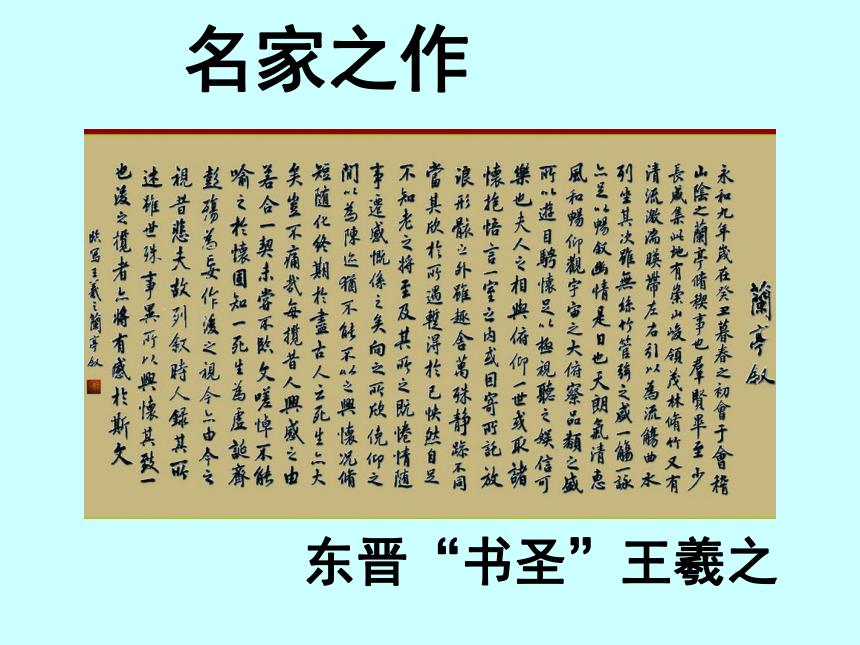 名家之作
蘭亭叙
永和九年歲在癸丑暮春之初會于會稽
山陰之蘭亭脩稧事也羣賢畢至少
長咸集此地有崇山峻領茂林脩竹又有
清流激湍暎帶左右引以為流觴曲水
列坐其次雖無絲竹管絃之盛觴一詠
亦足以暢叙幽情是日也天朗氣清惠
風和暢仰觀宇宙之大俯察品類之盛
所以遊目騁懷足以極視聽之娛信可
樂也夫人之相與俯仰一世或取諸
懷抱悟言一室之內或因寄所託放
浪形骸之外雖趣舍萬殊静躁不同
當其欣於所遇蹔得於己怏然自足
不知老之將至及其所之既惓情隨
事遷感慨係之矣向之所欣俛仰之
間以為陳迹猶不能不以之興懷況脩
短隨化終期於盡古人云死生亦大
矣豈不痛哉每攬昔人興感之由
若合一契未嘗不臨文嗟悼不能
喻之於懷固知一死生為虛誕齊
彭殤為妄作後之視今亦由今之
視昔悲夫故列叙時人錄其所
述雖世殊事異所以興懷其致一
也後之攬者亦將有感於斯文
臨寫王羲之蘭亭叙
东晋“书圣”王羲之